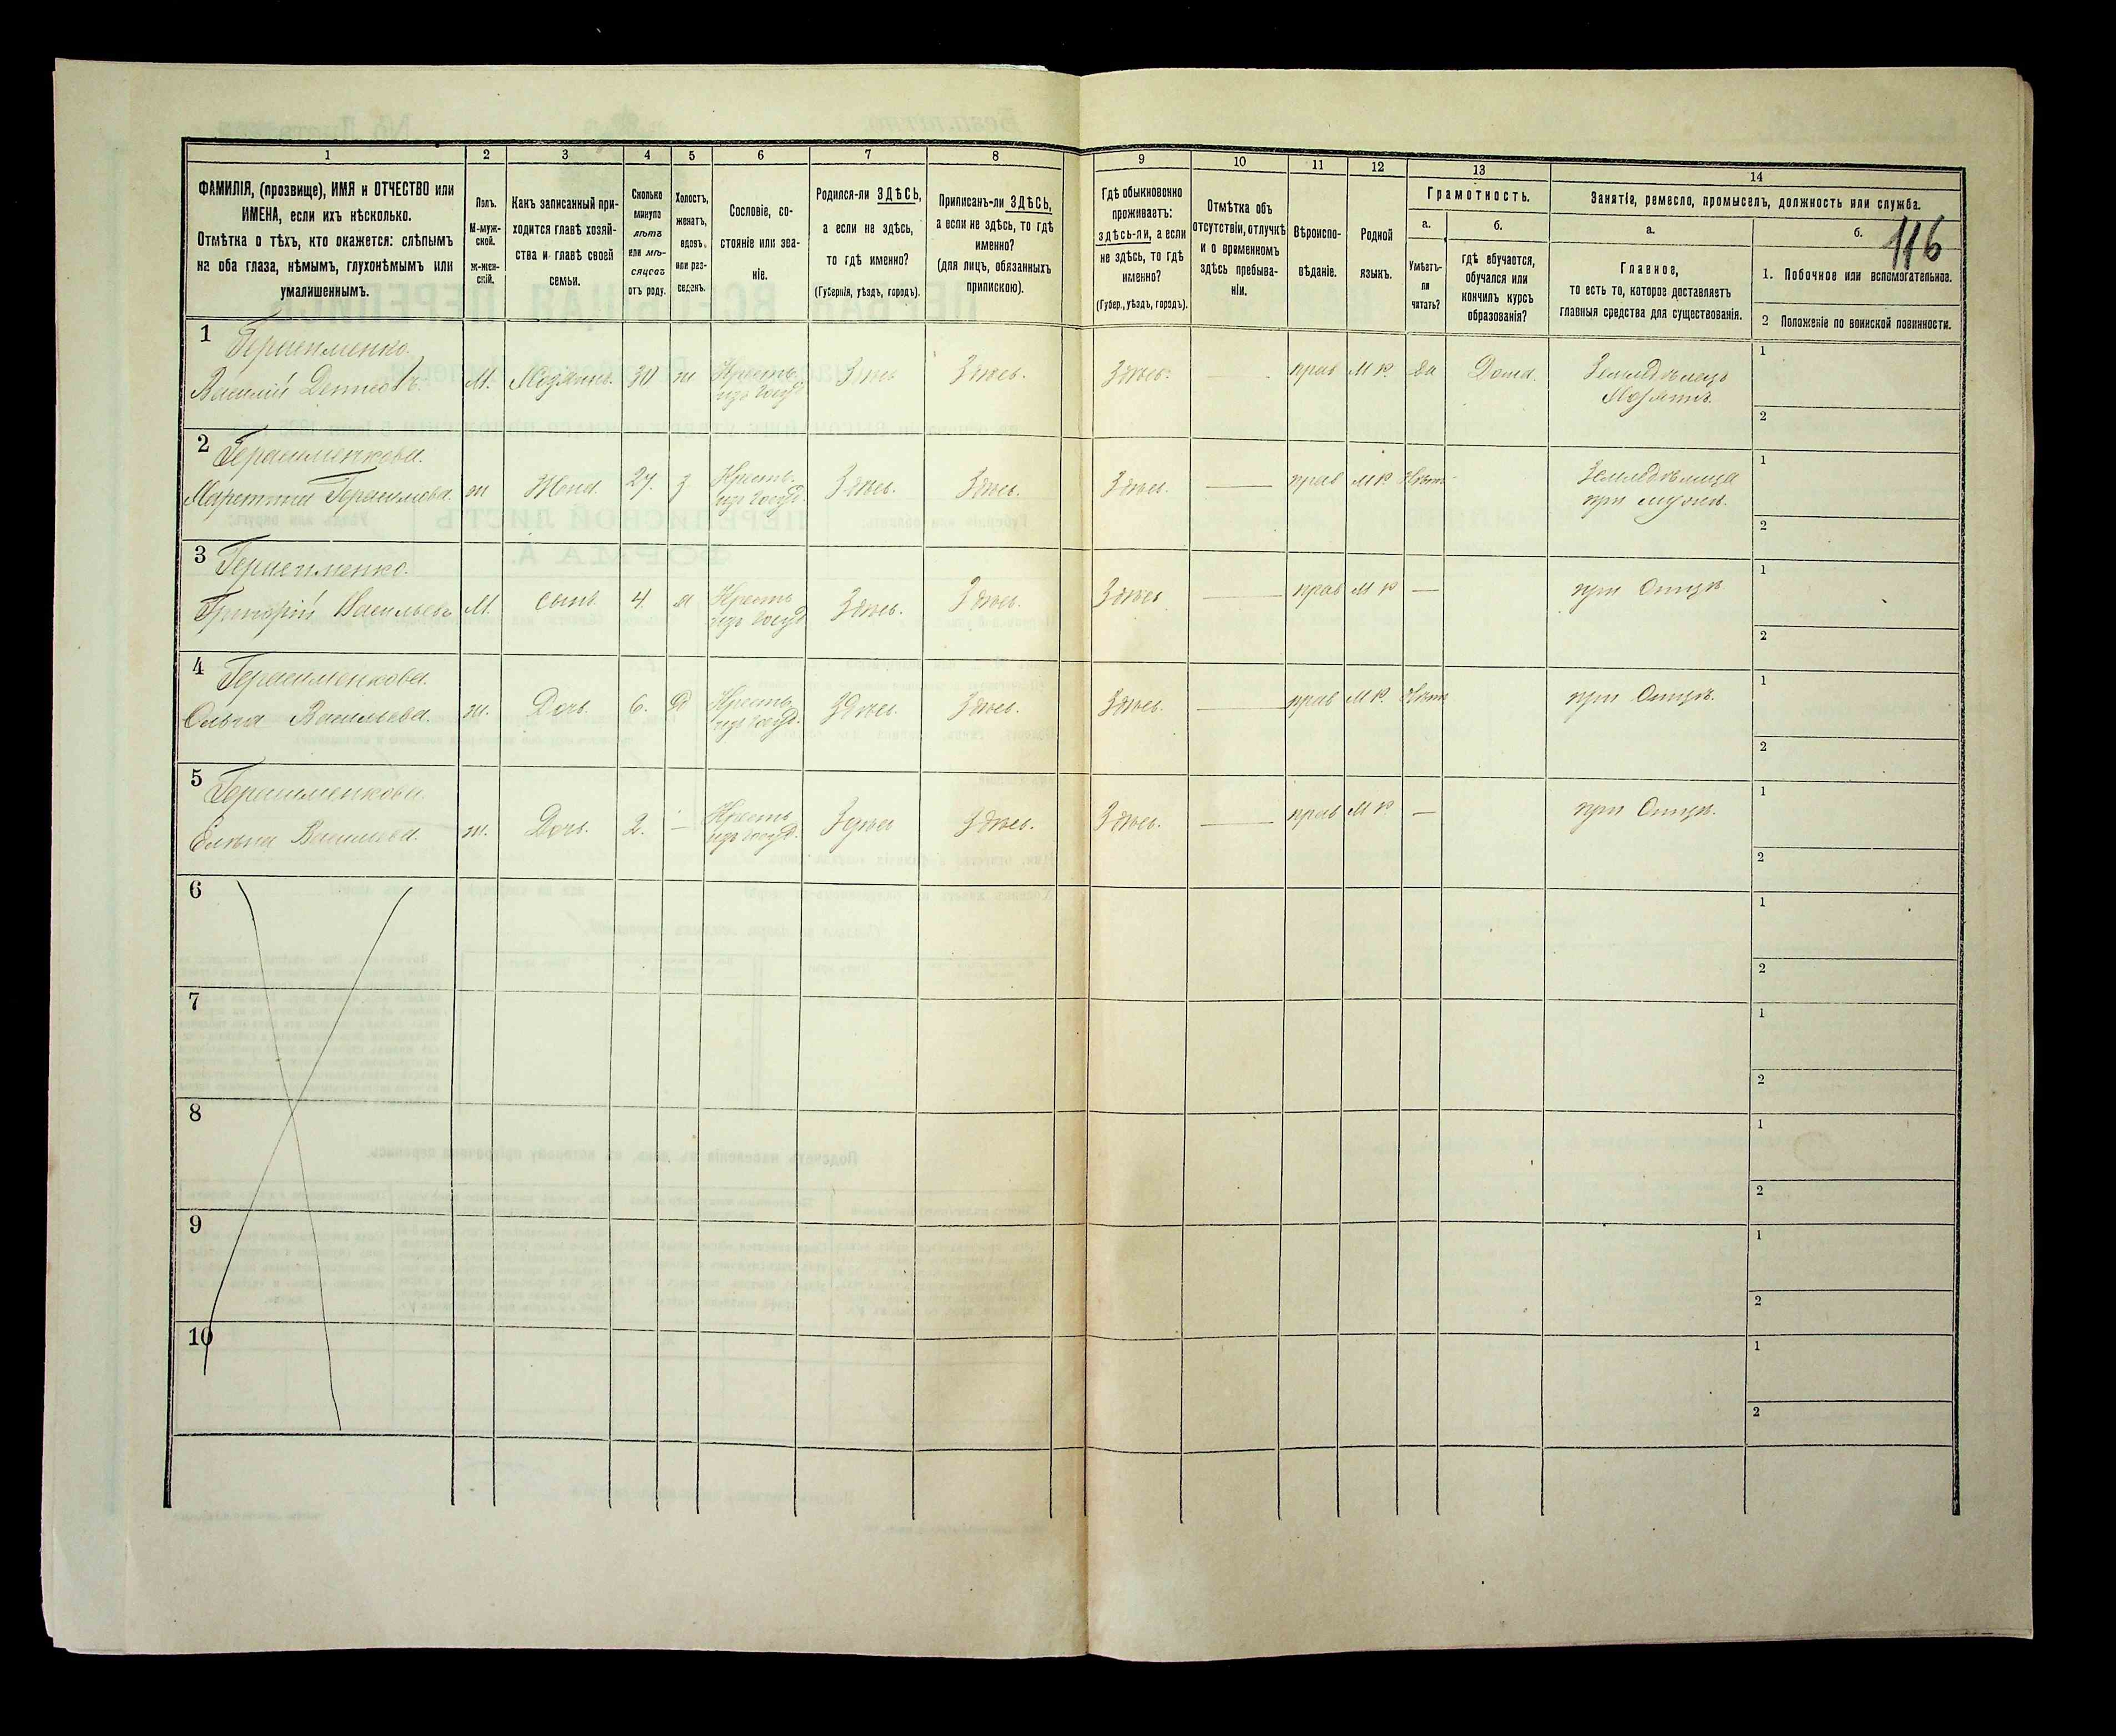 116
1
2
3
4
5
6
7
8
9
10
11
12
13
14
ФАМИЛІЯ, (прозвище), ИМЯ и ОТЧЕСТВО или
ИМЕНА, если ихъ нѣсколько.
Отмѣтка о тѣхъ, кто окажется: слѣпымъ
на оба глаза, нѣмымъ, глухонѣмымъ или
умалишеннымъ.
Полъ.
М-муж-
ской.
ж-жен-
скій.
Какъ записанный при-
ходится главѣ хозяй-
ства и главѣ своей
семьи.
Сколько
минуло
лѣтъ
или мѣ-
сяцевъ
отъ роду.
Холостъ,
женатъ,
вдовъ,
или раз-
веденъ.
Сословіе, со-
стояніе или зва-
ніе.
Родился-ли ЗДѢСЬ,
а если не здѣсь,
то гдѣ именно?
(Губернія, уѣздъ, городъ).
Приписанъ-ли ЗДѢСЬ,
а если не здѣсь, то гдѣ
именно?
(для лицъ, обязанныхъ
припискою).
Гдѣ обыкновенно
проживаетъ:
здѣсь-ли, а если
не здѣсь, то гдѣ
именно?
(Губер., уѣздъ, городъ).
Отмѣтка объ
отсутствіи, отлучкѣ
и о временномъ
здѣсь пребыва-
ніи.
Вѣроиспо-
вѣданіе.
Родной
языкъ.
Грамотность.
а.
Умѣетъ-
ли
читать?
б.
гдѣ обучается,
обучался или
кончилъ курсъ
образованія?
Занятіе, ремесло, промыселъ, должность или служба.
а.
Главное,
то есть то, которое доставляетъ
главныя средства для существованія.
б.
1. Побочное или вспомогательное.
2 Положеніе по воинской повинности.
1
Герасименко.
Василій М. 30 ж Крестьян. изъ госуд. Здѣсь Здѣсь. Здѣсь. — прав М Р. Да Дома. Земледѣлецъ
Хозяинъ.
1
2
2
Герасименкова.
Герасимова. ж Жена. 27. з Крестьян. изъ госуд. Здѣсь. Здѣсь. Здѣсь. — прав М Р Нѣтъ Земледѣлица
при мужѣ.
1
2
3
Герасименко.
Григорій Васильевъ М. сынъ. 4. Крестьян изъ госуд Здѣсь. Здѣсь. Здѣсь — прав М Р — при Отцѣ.
1
2
4
Герасименкова.
Ольга Васильева. ж. Дочь 6. Д Крестьян изъ госуд. Здѣсь. Здѣсь. Здѣсь. — прав М Р. Нѣтъ при Отцѣ.
1
2
5
Герасименкова.
Елена Васильева. ж. Дочь. 2. — Крестьян изъ госуд. Здѣсь Здѣсь. Здѣсь. — прав М Р. — при Отцѣ.
1
2
6
1
2
7
1
2
8
1
2
9
1
2
10
1
2